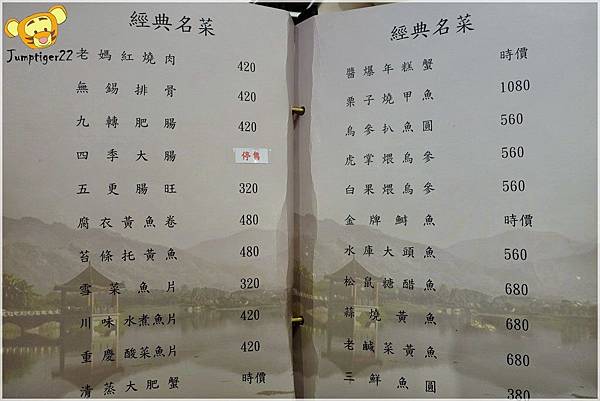 Jumptiger22
經典名菜
老媽紅燒肉 420
無錫排骨 420
九轉肥腸 420
四季大腸 停售
五更腸旺 320
腐衣黃魚卷 480
苔條托黃魚 480
雪菜魚片 320
川味水煮魚片 420
重慶酸菜魚片 420
清蒸大肥蟹 時價
經典名菜
醬爆年糕蟹 時價
栗子燒甲魚 1080
烏參扒魚圓 560
虎掌煨烏參 560
白果煨烏參 560
金牌鰣魚 時價
水庫大頭魚 560
松鼠糖醋魚 680
蒜燒黃魚 680
老鹹菜黃魚 680
三鮮魚圓 380